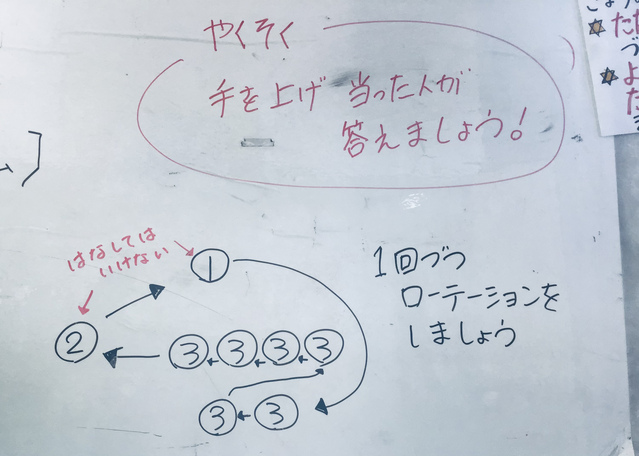 やくそく
手を上げ 当った人が
答えましょう!
はなしては
いけない
1
2
3 3 3 3
3 3
1回づつ
ローテーションを
しましょう